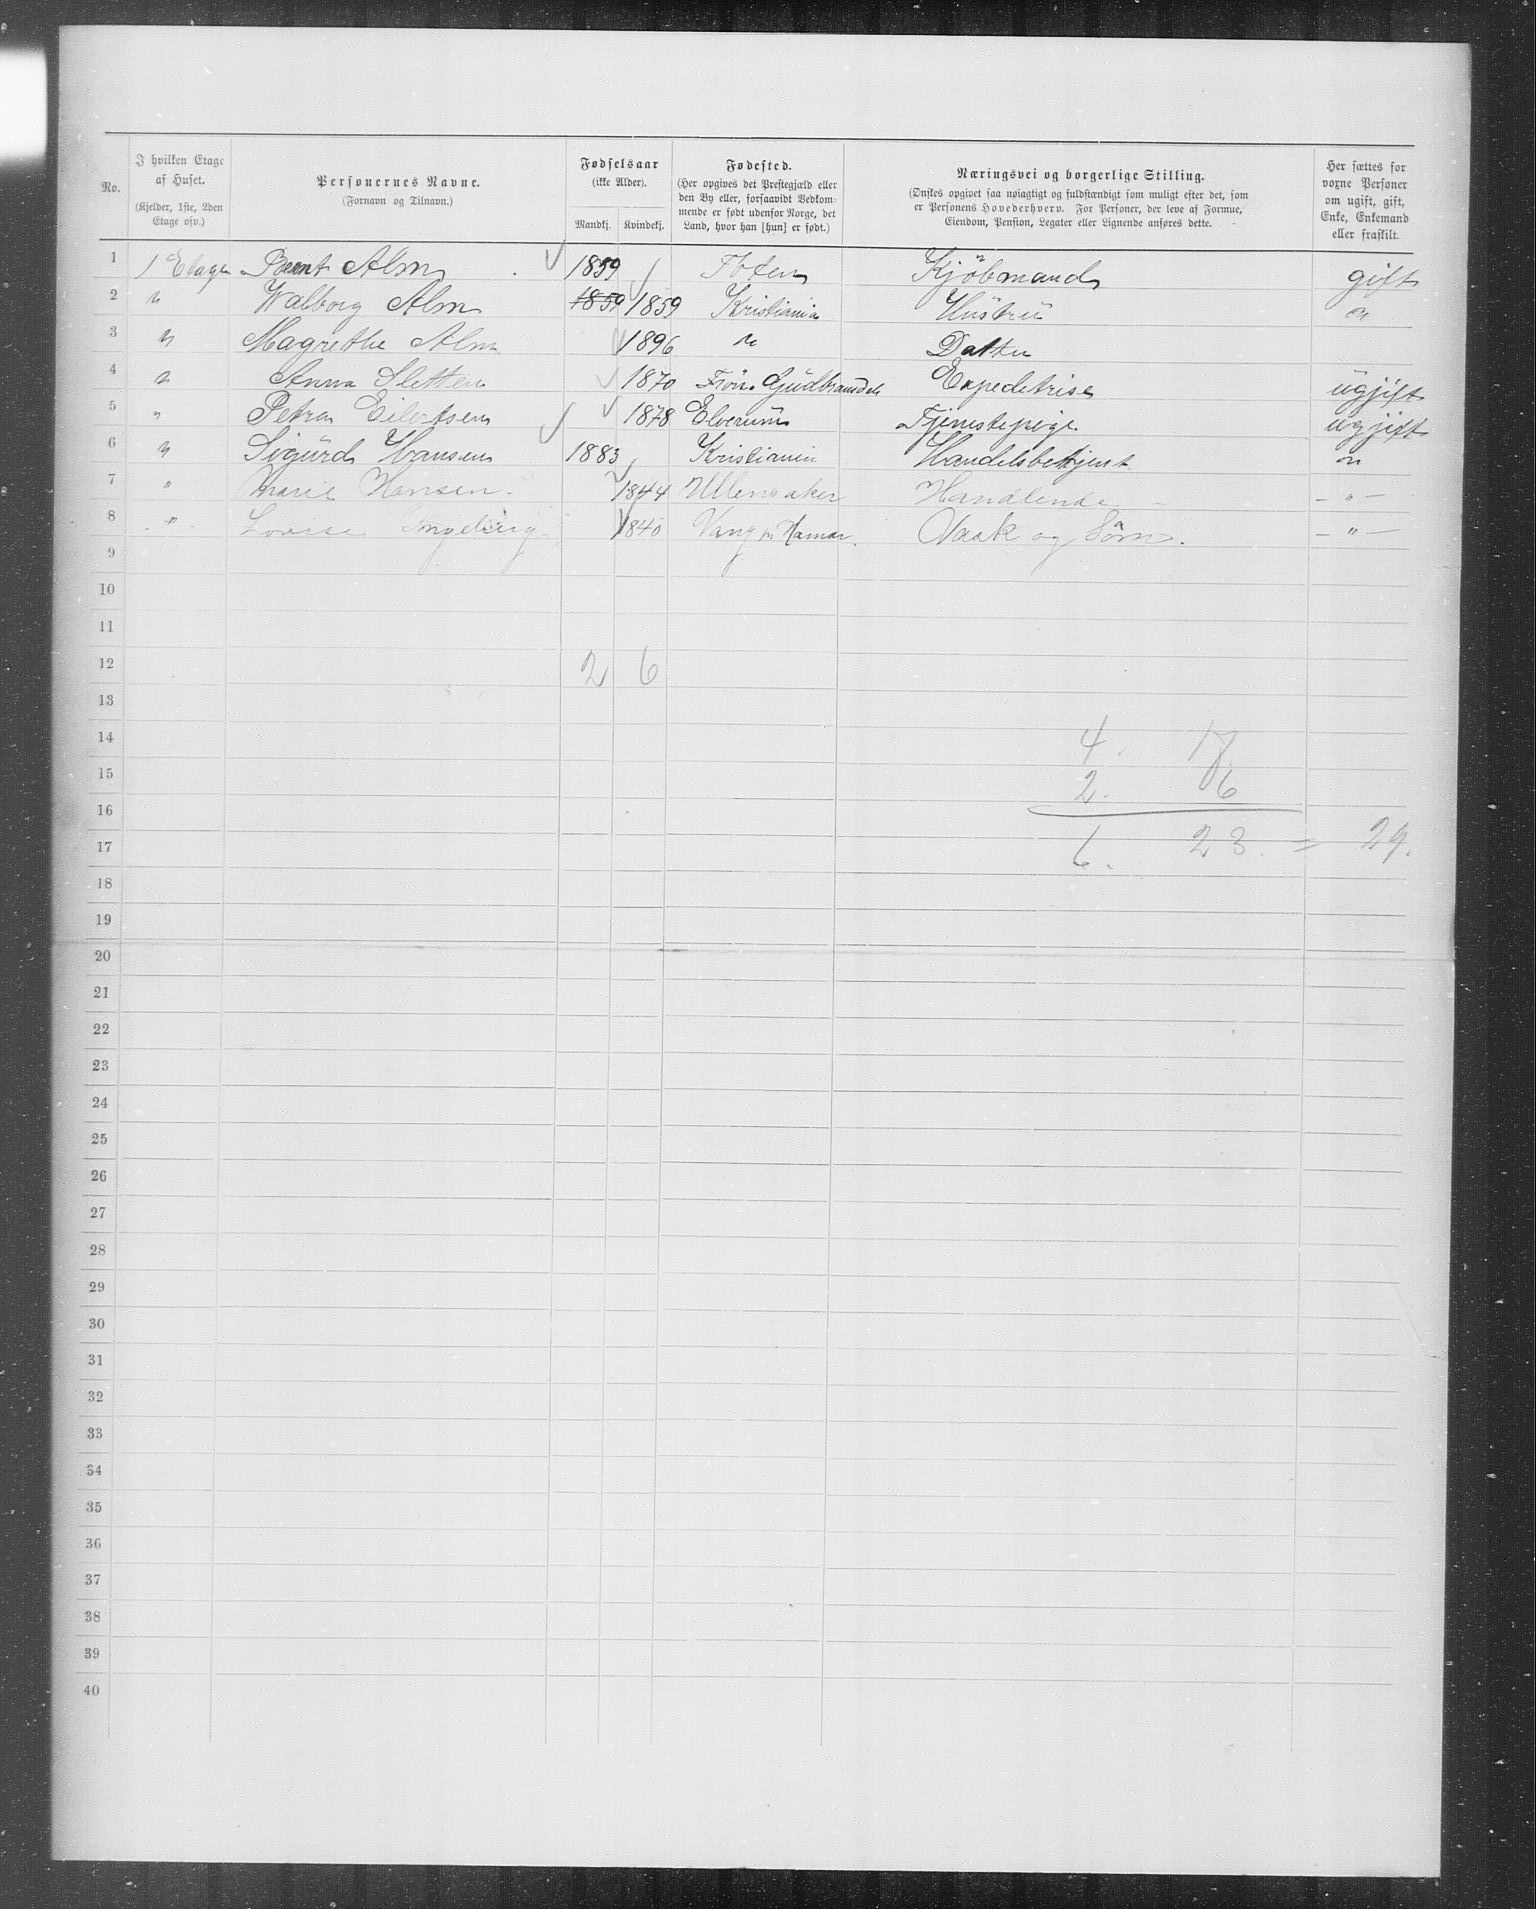 No.
I hvilken Etage af Huset.
(Kjelder, 1ste, 2den Etage osv.)
Personernes Navne.
(Fornavn og Tilnavn.)
Fødselsaar
(ikke Alder).
Mandkj. Kvindekj.
Fødested.
(Her opgives det Prestegjæld eller den By eller, forsaavidt Vedkommende er født udenfor Norge, det Land, hvor han [hun] er født.)
Næringsvei og borgerlige Stilling.
(Ønskes opgivet saa nøiagtigt og fuldstændigt som muligt efter det, som er Personens Hovederhverv. For Personer, der leve af Formue, Eiendom, Pension, Legater eller Lignende anføres dette.
Her sættes for voxne Personer om ugift, gift, Enke, Enkemand eller fraskilt.
1 1 Etage Bernt Alm 1859 Toten Kjöbmand gift
2 " Walborg Alm 1859 1859 Kristiania Hustru "
3 " Magrethe Alm 1896 " Datter
4 " Anna Sletten 1870 Fron Gudbrandsdn Expeditrise ugjift
5 " Petra Eilertsen 1878 Elverum Tjenestepige ugjift
6 " Sigurd Hansen 1883 Kristiania Handelsbetjent "
7 " Marie Hansen. 1844 Ullensaker Handlende - " -
8 " Lovise Ingeberg 1840 Vang pr Hamar. Vask og Söm. - " -
9
10
11
12 2 6
13
14 4. 17.
15 2. 6
16
17 6. 23. = 29.
18
19
20
21
22
23
24
25
26
27
28
29
30
31
32
33
34
35
36
37
38
39
40